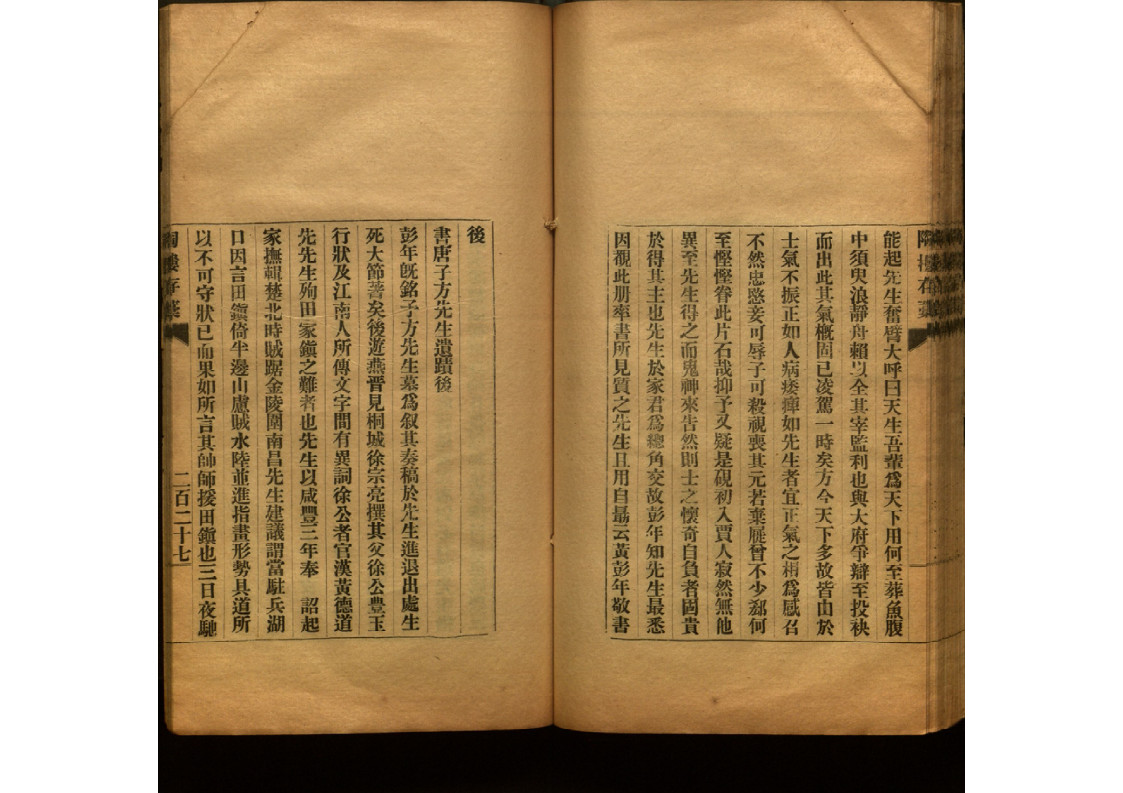 能起先生奮臂大呼曰天生吾輩爲天下用何至葬魚腹
中須臾浪靜舟賴以全其宰監利也與大府爭辯至投袂
而出此其氣槪固已凌駕一時矣方今天下多故皆由於
士氣不振正如人病痿痺如先生者宜正氣之相爲感召
不然忠愍妾可辱子可殺視喪其元若棄屣曾不少郄何
至慳慳眷此片石哉抑予又疑是硯初入賈人寂然無他
異至先生得之而鬼神來告然則士之懷奇自負者固貴
於得其主也先生於家君爲總角交故彭年知先生最悉
因觀此册率書所見質之先生且用自勗云黃彭年敬書
後
書唐子方先生遺蹟後
彭年旣銘子方先生墓爲叙其奏稿於先生進退出處生
死大節著矣後遊燕晋見桐城徐宗亮撰其父徐公豐玉
行狀及江南人所傳文字間有異詞徐公者官漢黃德道
先先生殉田家鎭之難者也先生以咸豐三年奉 詔起
家撫輯楚北時賊踞金陵圍南昌先生建議謂當駐兵湖
口因言田鎭倚半邊山慮賊水陸並進指畫形勢具道所
以不可守狀已而果如所言其帥師援田鎭也三日夜馳
陶樓存藁
二百二十七